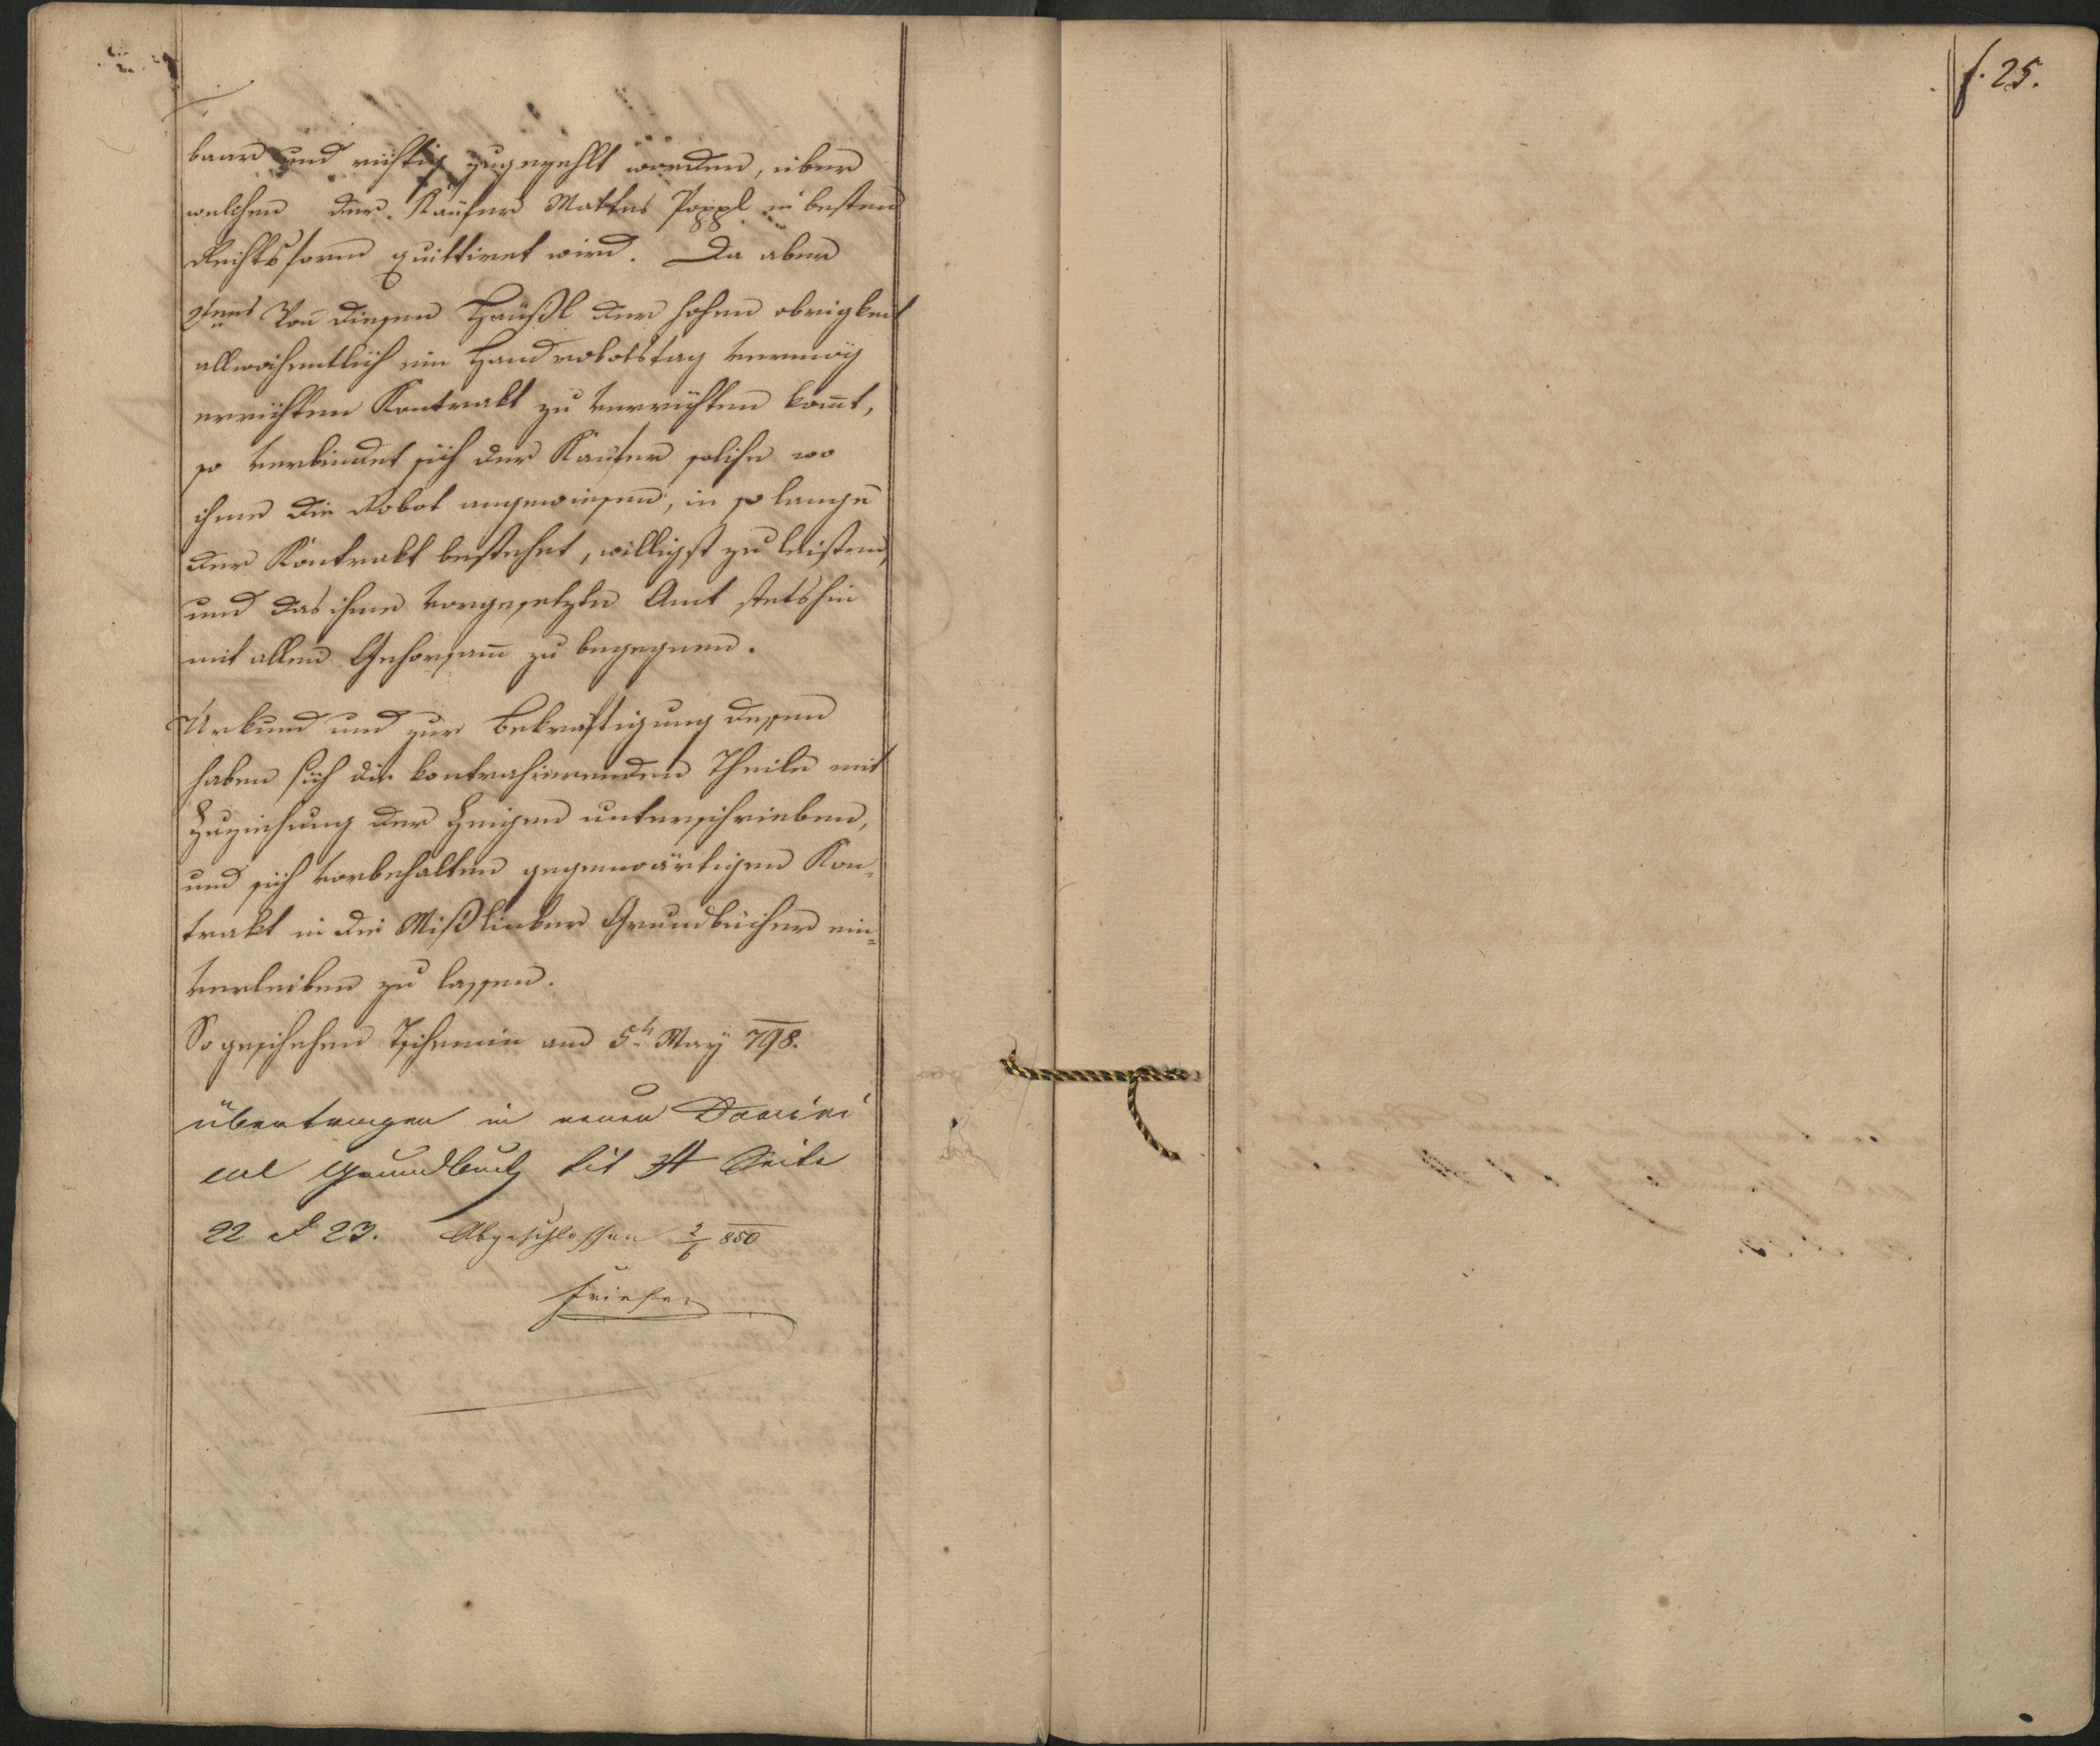 baar und richtig zugezehlt worden, über
welchen der Käufer Mattes Poppl in besten
Rechtsform quittiret wird. Da aber
Von diesen Häußl der hohen obrigkeit
allwochentlich ein Handrobotstag vermög
errichten Kontrakt zu verrichten kom̄t,
so verbindet sich der Kaufer solche wo
ihme die Robot angewiesen, in so lange
der Kontrakt bestehet, willigst zu leisten,
und das ihme vorgesetzte Amt stetshin
mit allen Gehorsam̄ zu begegnen.
Urkund und zur Bekraftigung dessen
haben sich die kontrahierenden Theile mit
Zuziehung der Zeigen unterschrieben,
und sich vorbehalten gegenwärtigen Kon-
trakt in die Mißlieber Grundbücher ein-
verleiben zu lassen.
So geschehen Tschemin am 5t May 798.
übertragen in neuen Domini
cal Grundbuch lit Seite
22 & 23. Abgeschlossen 2/6 850
f. 25.